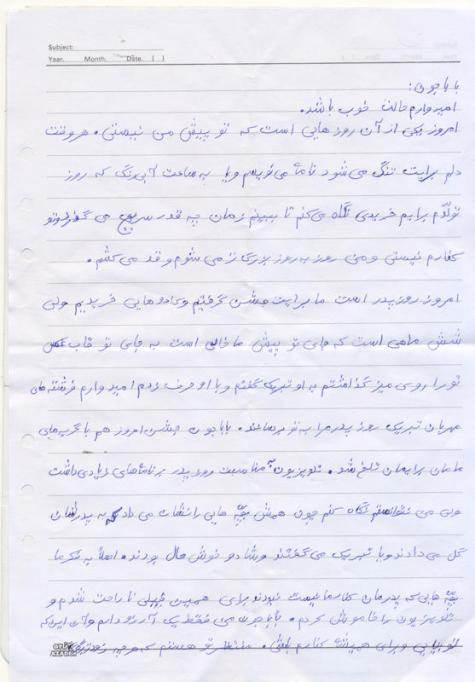 Subject:
Year. Month. Date. ( )
بابا جون:
امیدوارم حالت خوب باشد.
امروز یکی از آن روز هایی است که تو پیش من نیستی. هر وقت
دلم برایت تنگ می شود نامه می نویسم و یا به ساعت آبی رنگ که روز
تولّدم برایم خریدی نگاه می کنم تا ببینم زمان چه قدر سریع می گذرد و تو
کنارم نیستی و من روز به روز بزرگ تر می شوم و قد می کشم.
امروز روز پدر است ما برایت جشن گرفتیم و کادو هایی خریدیم ولی
شش ماهی است که جای تو پیش ما خالی است به جای تو قاب عکس
تو را روی میز گذاشتم به او تبریک گفتم و با او حرف زدم امیدوارم فرشته های
مهربان تبریک روز پدر مرا به تو برسانند. بابا جون جشن امروز هم با گریه های
مامان برایمان تلخ شد. تلویزیون به مناسبت روز پدر برنامه های زیادی داشت
ولی من نتوانستم نگاه کنم چون همش بچّه هایی را نشان می داد که به پدرشان
گل می دادند و یا تبریک می گفتند و شاد و خوش حال بودند. اصلاً به فکر ما
بچّه هایی که پدرمان کنارمان نیست نبودند برای همین خیلی ناراحت شدم و
تلویزیون را خاموش کردم. بابا جون من فقط یک آرزو دارم و آن این که
تو بیایی و برای همیشه کنارم باشی. منتظر تو هستم